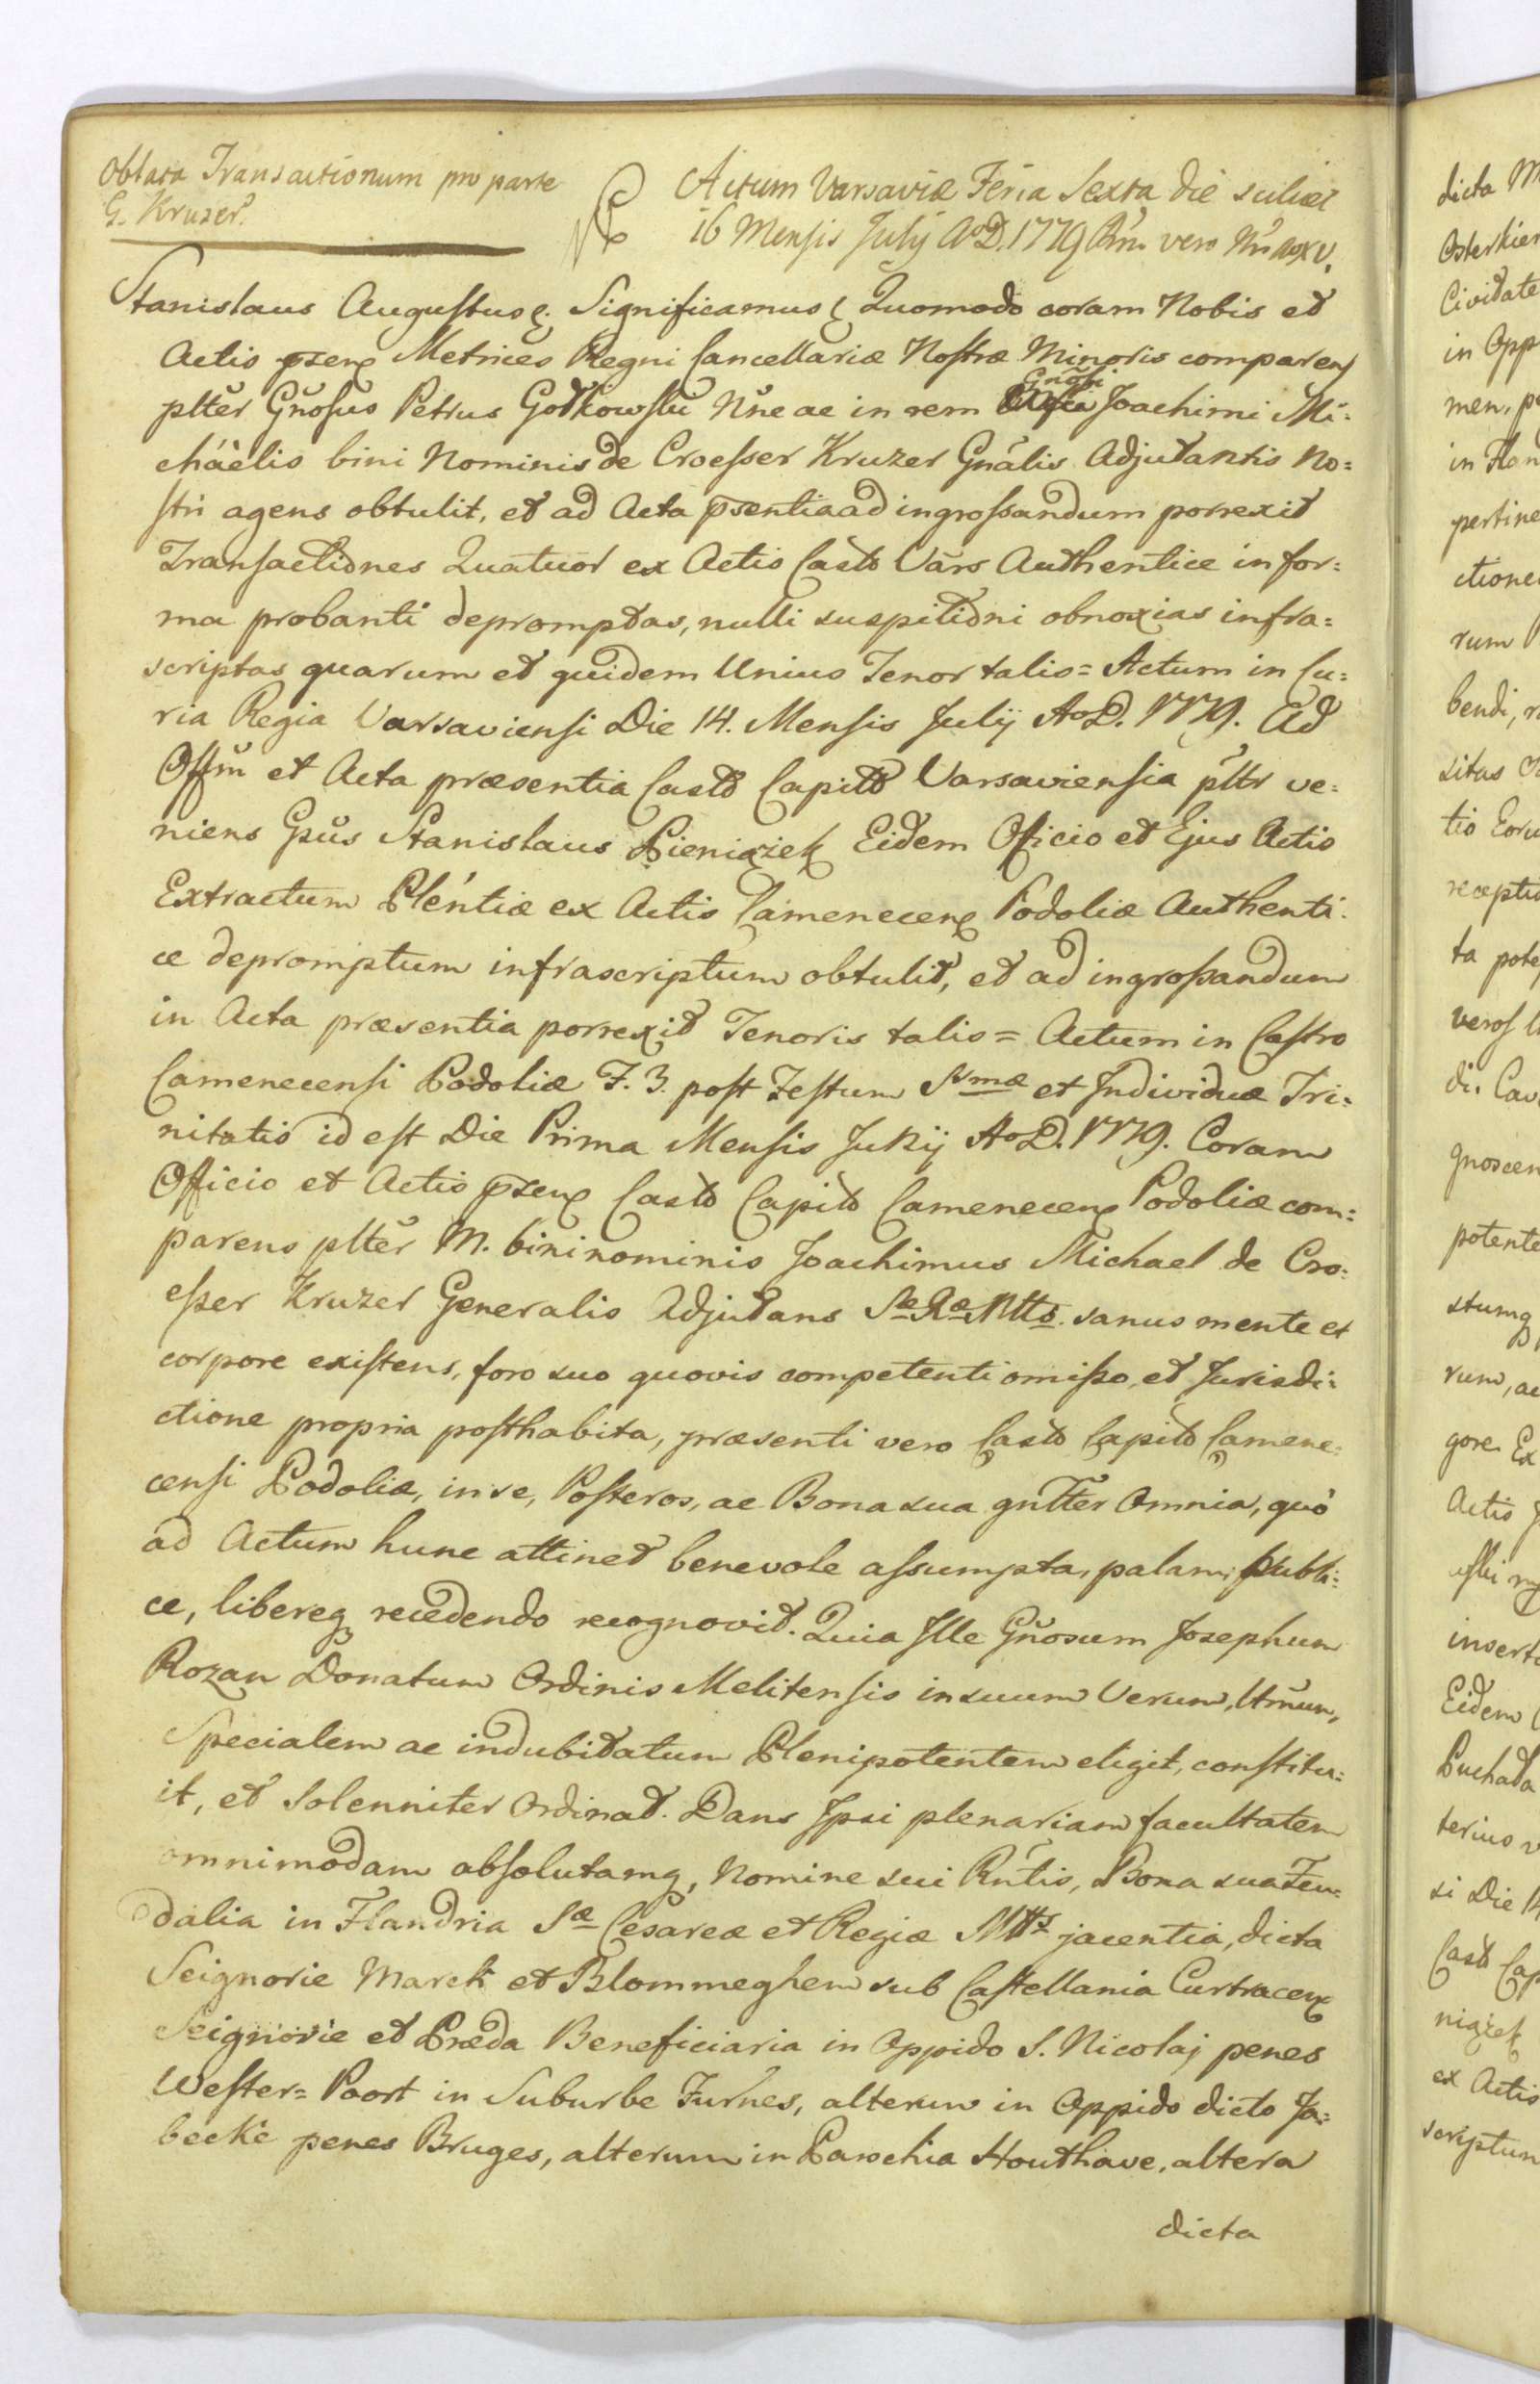 Oblata Transactionum pro parte
G. Kruzer.
Actum Varsaviæ Feria Sexta die scilicet
16 Mensis Julij AoD. 1779 Rni vero Nri Ao XV.
Stanislaus Augustus &. Significamus & Quomodo coram Nobis et
Actis pzens Metrices Regni Cancellariæ Nostræ Minoris comparens
plter Gnosus Petrus Godkowski Nne ac in rem Gnosi Joachimi Mi:
cháèlis bini Nominis de Croesser Kruzer Gnalis Adjutantis No:
stri agens obtulit, et ad Acta pzentia ad ingrossandum porrexit
Transactiones Quatuor ex Actis Castr Vars Authentice in for:
ma probanti depromptas, nulli suspitioni obnoxias infra:
scriptas quarum et quidem Unius Tenor talis = Actum in Cu:
ria Regia Varsaviensi Die 14. Mensis Julij AoD. 1779. Ad
Offm et Acta præsentia Castr Capitl Varsaviensia pltr ve:
niens Gsus Stanislaus Pieniążek Eidem Officio et Ejus Actis
Extractum Plentiæ ex Actis Camenecens Podoliæ Authenti:
ce depromptum infrascriptum obtulit, et ad ingrossandum
in Acta præsentia porrexit Tenoris talis = Actum in Castro
Camenecensi Podoliæ F. 3. post Festum Ssmæ et Individuæ Tri:
nitatis id est Die Prima Mensis Junij AoD. 1779. Coram
Officio et Actis pzens Castr Capitl Camenecens Podoliæ com:
parens plter M. bini nominis Joachimus Michael de Cro:
esser Kruzer Generalis Adjutans Sæ Ræ Mttis. sanus mente et
corpore existens, foro suo quovis competenti omisso, et Jurisdi:
ctione propria posthabita, præsenti vero Castr Capitl Camene:
censi Podoliæ, in se, Posteros, ac Bona sua gntter Omnia, quò
ad Actum hunc attinet benevole assumpta, palam, publi:
ce, libereq recedendo recognovit. Quia Ille Gnosum Josephum
Rozan Donatum Ordinis Melitensis in suum Verum, Ltmum,
Specialem ac indubitatum Plenipotentem eligit, constitu:
it, et solenniter Ordinat. Dans Ipsi plenariam facultatem
omnimodam absolutamq, Nomine sui Rntis, Bona sua Feu:
dalia in Flandria Sæ Cesareæ et Regiæ Mttis jacentia, dicta
Seignorie Marck et Blommeghem sub Castellania Curtracens
Seignorie et Præda Beneficiaria in Oppido S. Nicolaj penes
Wester = Poort in Suburbe Furnes, alterum in Oppido dicto Ja:
becke penes Bruges, alterum in Parochia Houthave, altera
dicta